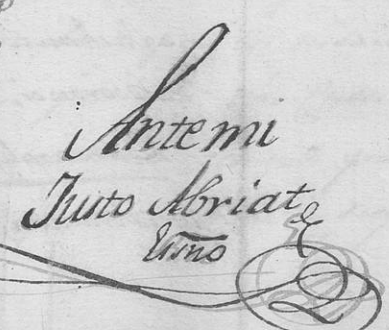 Ante mi
Justo Abriat
Essño